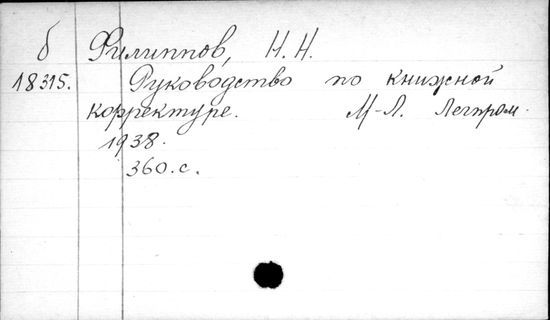 б Филиппов, Н. Н.
18315. Руководство по книжной
корректуре. М-Л. Легпром.
1938.
360.с.